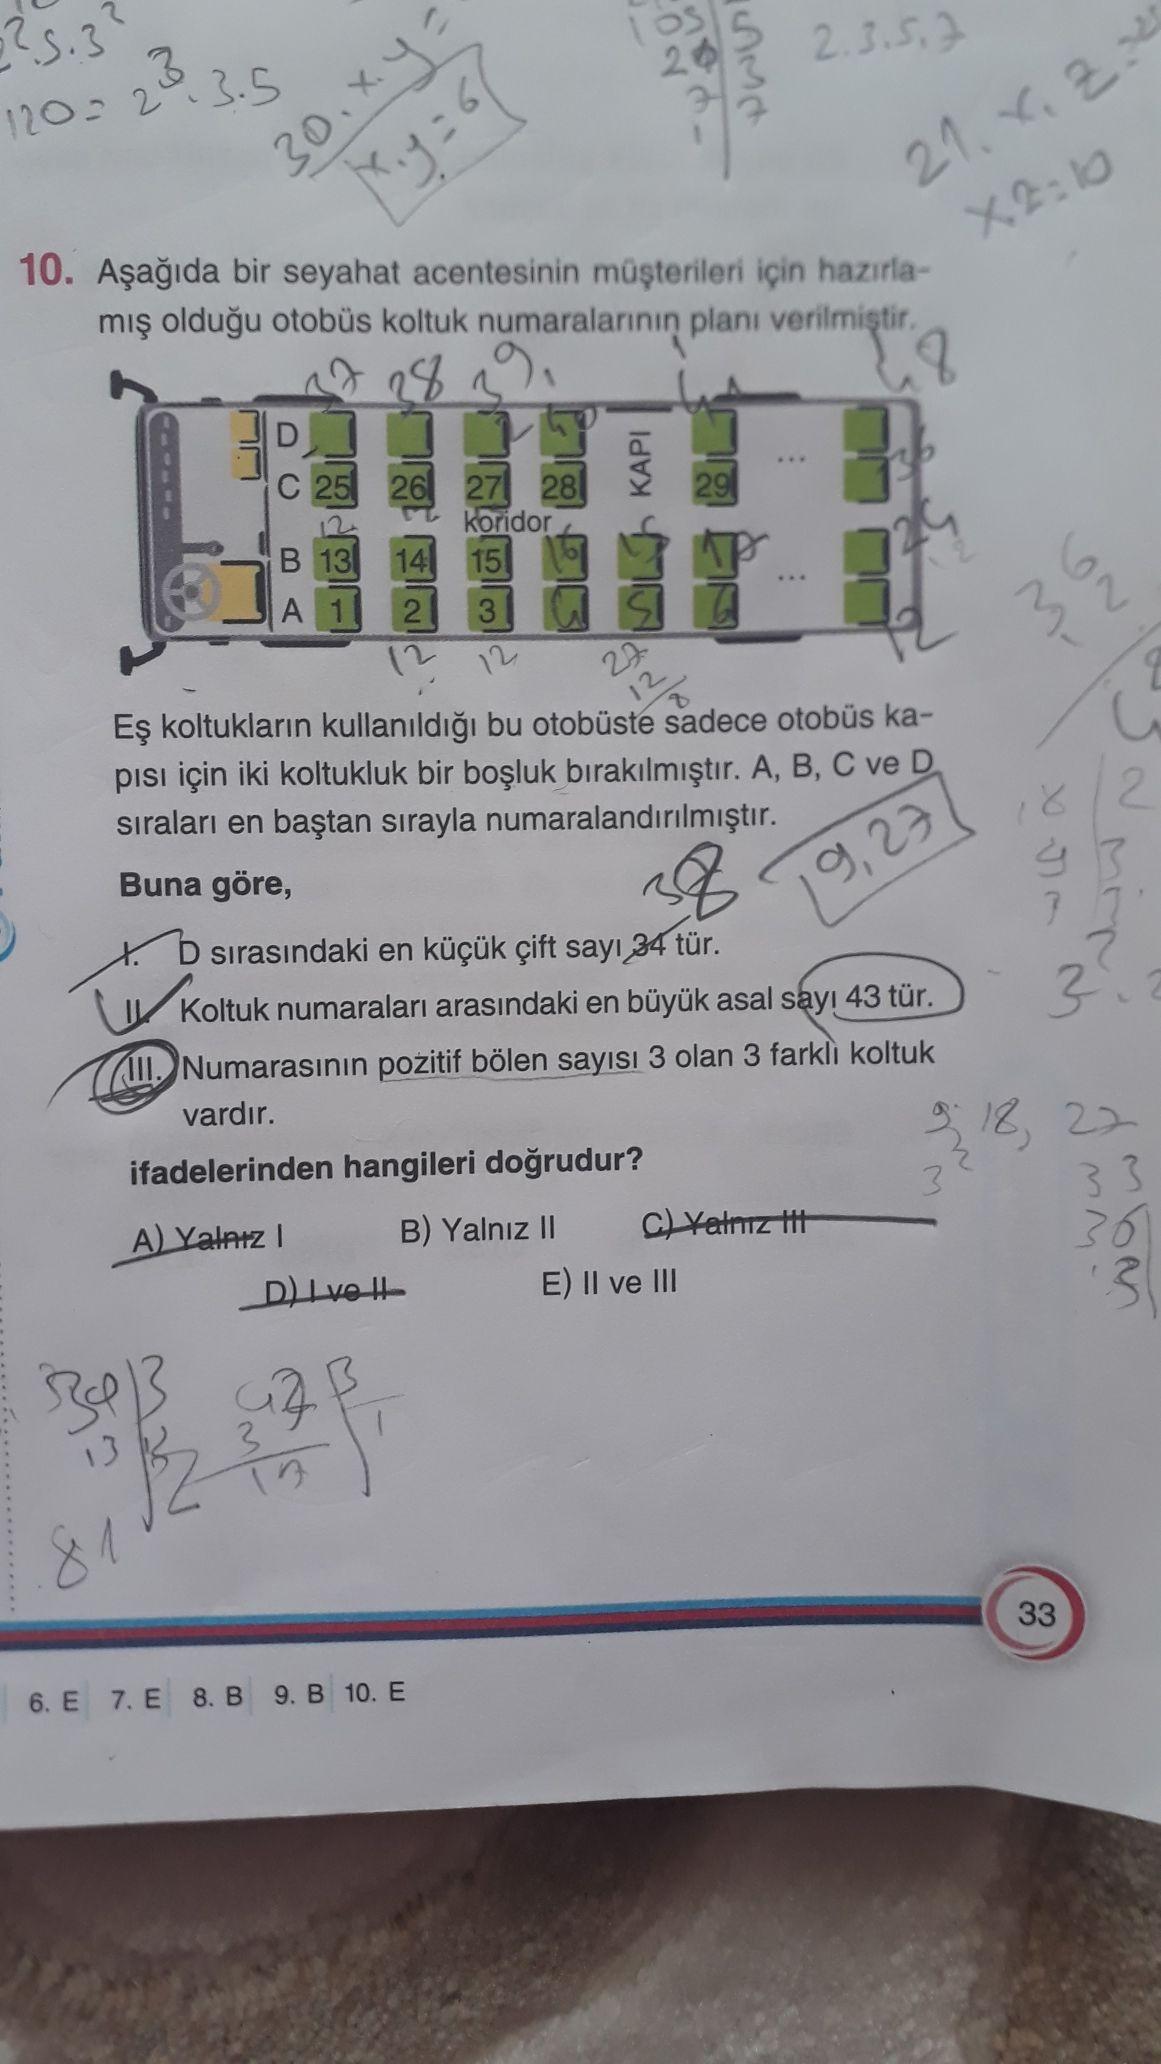 2².5.3²
120=2³.3.5
30.x.y
x.y=6
105 5
3
7 7
1
2.3.5.7
21.x.z=
x.z=10
10. Aşağıda bir seyahat acentesinin müşterileri için hazırla-
mış olduğu otobüs koltuk numaralarının planı verilmiştir.
37 38 39 48
D 40
KAPI
...
C 25 26 27 28 29 36
12 12 koridor
B 13 14 15 16 17 24
...
A 1 2 3 4 5 6 12
12 12 27
12
Eş koltukların kullanıldığı bu otobüste sadece otobüs ka-
pısı için iki koltukluk bir boşluk bırakılmıştır. A, B, C ve D
sıraları en baştan sırayla numaralandırılmıştır.
9,27
Buna göre,
38
I. D sırasındaki en küçük çift sayı 34 tür.
II. Koltuk numaraları arasındaki en büyük asal sayı 43 tür.
III. Numarasının pozitif bölen sayısı 3 olan 3 farklı koltuk
vardır.
9, 18, 27
3²
33
36
3
ifadelerinden hangileri doğrudur?
A) Yalnız I B) Yalnız II C) Yalnız III
D) I ve II E) II ve III
3
13
47 3
3 1
17
81
33
6. E 7. E 8. B 9. B 10. E